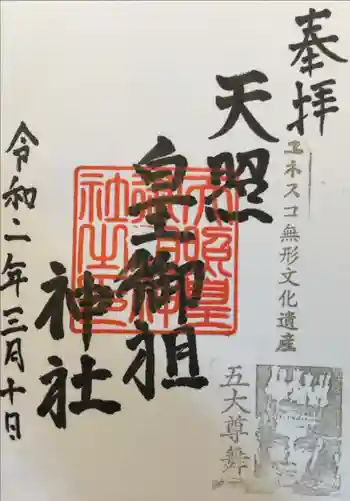 奉拝
ユネスコ無形文化遺産
五大尊舞
天照
皇御祖
神社
令和二年三月十日